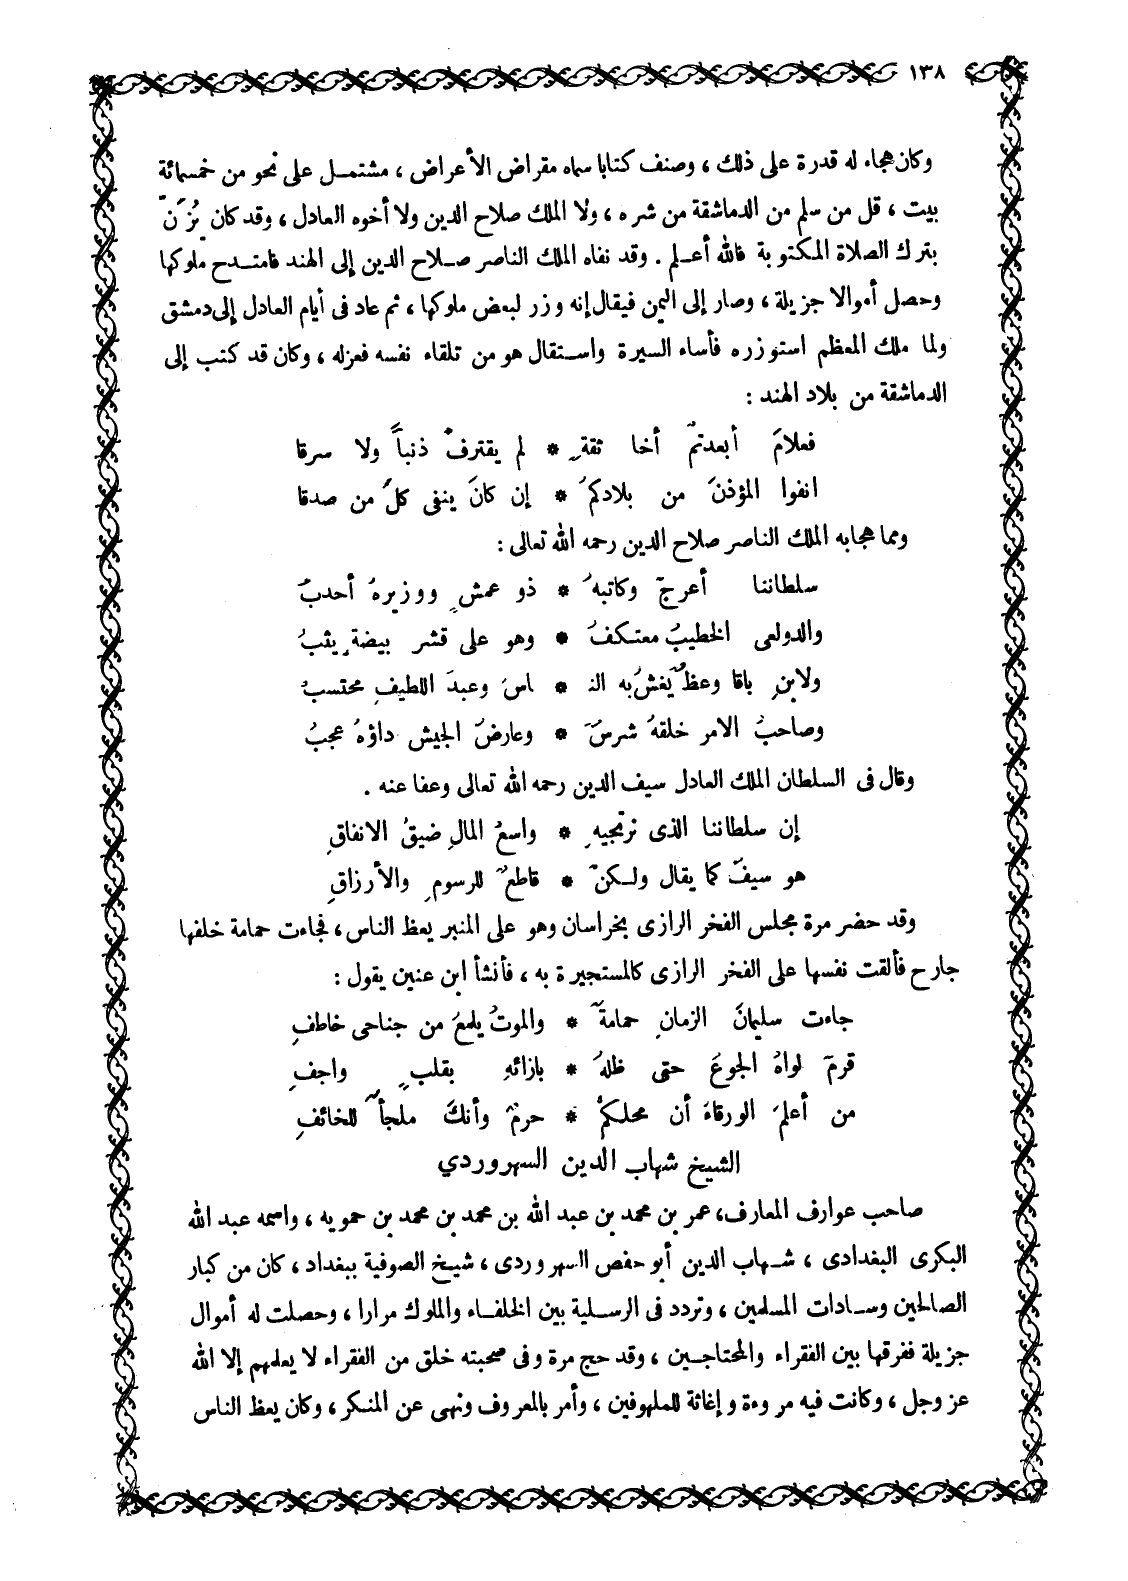 ١٣٨
وكان هجاء له قدرة على ذلك ، وصنف كتابا سماه مقراض الأعراض ، مشتمل على نحو من خمسمائة
بيت ، قل من سلم من الدماشقة من شره ، ولا الملك صلاح الدين ولا أخوه العادل ، وقد كان يُزَنّ
بترك الصلاة المكتوبة فالله أعلم . وقد نفاه الملك الناصر صلاح الدين إلى الهند فامتدح ملوكها
وحصل أموالا جزيلة ، وصار إلى اليمن فيقال إنه وزر لبعض ملوكها ، ثم عاد فى أيام العادل إلى دمشق
ولما ملك المعظم استوزره فأساء السيرة واستقال هو من تلقاء نفسه فعزله ، وكان قد كتب إلى
الدماشقة من بلاد الهند :
فعلامَ أبعدتمْ أخا ثقةٍ * لم يقترفْ ذنباً ولا سرقا
انفوا المؤذنَ من بلادكمُ * إن كانَ ينفى كلُّ من صدقا
ومما هجابه الملك الناصر صلاح الدين رحمه الله تعالى :
سلطاننا أعرجٌ وكاتبهُ * ذو عمشٍ ووزيرهُ أحدبُ
والدولعى الخطيبُ معتكفُ * وهو على قشر بيضةٍ يثبُ
ولابنِ باقا وعظٌ يغشُ به النـ * ـاسَ وعبدَ اللطيفِ محتسبُ
وصاحبُ الامر خلقهُ شرسٌ * وعارضُ الجيش داؤهُ عجبُ
وقال فى السلطان الملك العادل سيف الدين رحمه الله تعالى وعفا عنه .
إن سلطاننا الذى نرتجيهِ * واسعُ المالِ ضيقُ الانفاقِ
هو سيفٌ كما يقال ولكنْ * قاطعٌ للرسومِ والأرزاقِ
وقد حضر مرة مجلس الفخر الرازى بخراسان وهو على المنبر يعظ الناس ، فجاءت حمامة خلفها
جارح فألقت نفسها على الفخر الرازى كالمستجيرة به ، فأنشأ ابن عنين يقول :
جاءت سليمانَ الزمانِ حمامةٌ * والموتُ يلمعُ من جناحى خاطفِ
قرمٌ لواهُ الجوعُ حتى ظلهُ * بازائهِ بقلبٍ واجفِ
من أعلمَ الورقاءَ أن محلكمْ * حرمٌ وأنكَ ملجأٌ للخائفِ
الشيخ شهاب الدين السهروردي
صاحب عوارف المعارف، عمر بن محمد بن عبد الله بن محمد بن محمد بن حمويه ، واسمه عبد الله
البكرى البغدادى ، شهاب الدين أبو حفص السهروردى ، شيخ الصوفية ببغداد ، كان من كبار
الصالحين وسادات المسلمين ، وتردد فى الرسلية بين الخلفاء والملوك مرارا ، وحصلت له أموال
جزيلة ففرقها بين الفقراء والمحتاجين ، وقد حج مرة وفى صحبته خلق من الفقراء لا يعلمهم إلا الله
عز وجل ، وكانت فيه مروءة وإغاثة للملهوفين ، وأمر بالمعروف ونهى عن المنكر ، وكان يعظ الناس